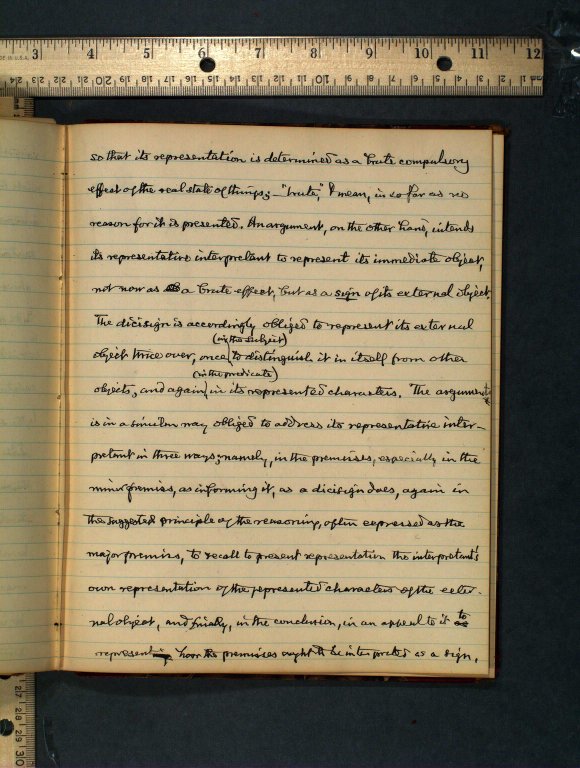 3 4 5 6 7 8 9 10 11 12
so that its representation is determined as a brute compulsory
effect of the real state of things; – "brute," I mean, in so far as no
reason for it is presented. An argument, on the other hand, intends
its representative interpretant to represent its immediate object,
not now as a brute effect, but as a sign of its external object.
The dicisign is accordingly obliged to represent its external
(in the subject)
object twice over, once to distinguish it in itself from other
(in the predicate)
objects, and again in its represented characters. The argument
is in a similar way obliged to address its representative inter-
pretant in three ways; namely, in the premisses, especially in the
minor premiss, as informing it, as a dicisign does, again in
the suggested principle of the reasoning, often expressed as the
major premiss, to recall to present representation the interpretant's
own representation of the represented characters of the exter-
nal object, and finally, in the conclusion, in an appeal to it to
represent how the premisses ought to be interpreted as a sign.